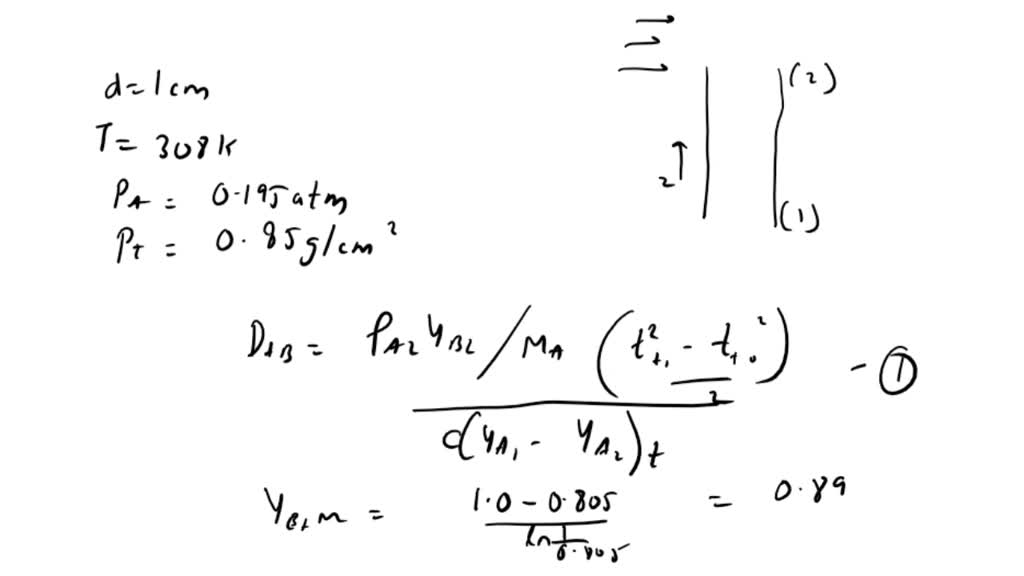 d=1cm
T= 308K
PA = 0.195atm
PT = 0.85g/cm²
(2)
2
(1)
DAB = ρA2 yB2 / MA (t²t1 - tt0² / 2) / c(yA1 - yA2)t - ①
yB,m = 1.0 - 0.805 / ln 1/0.805 = 0.89